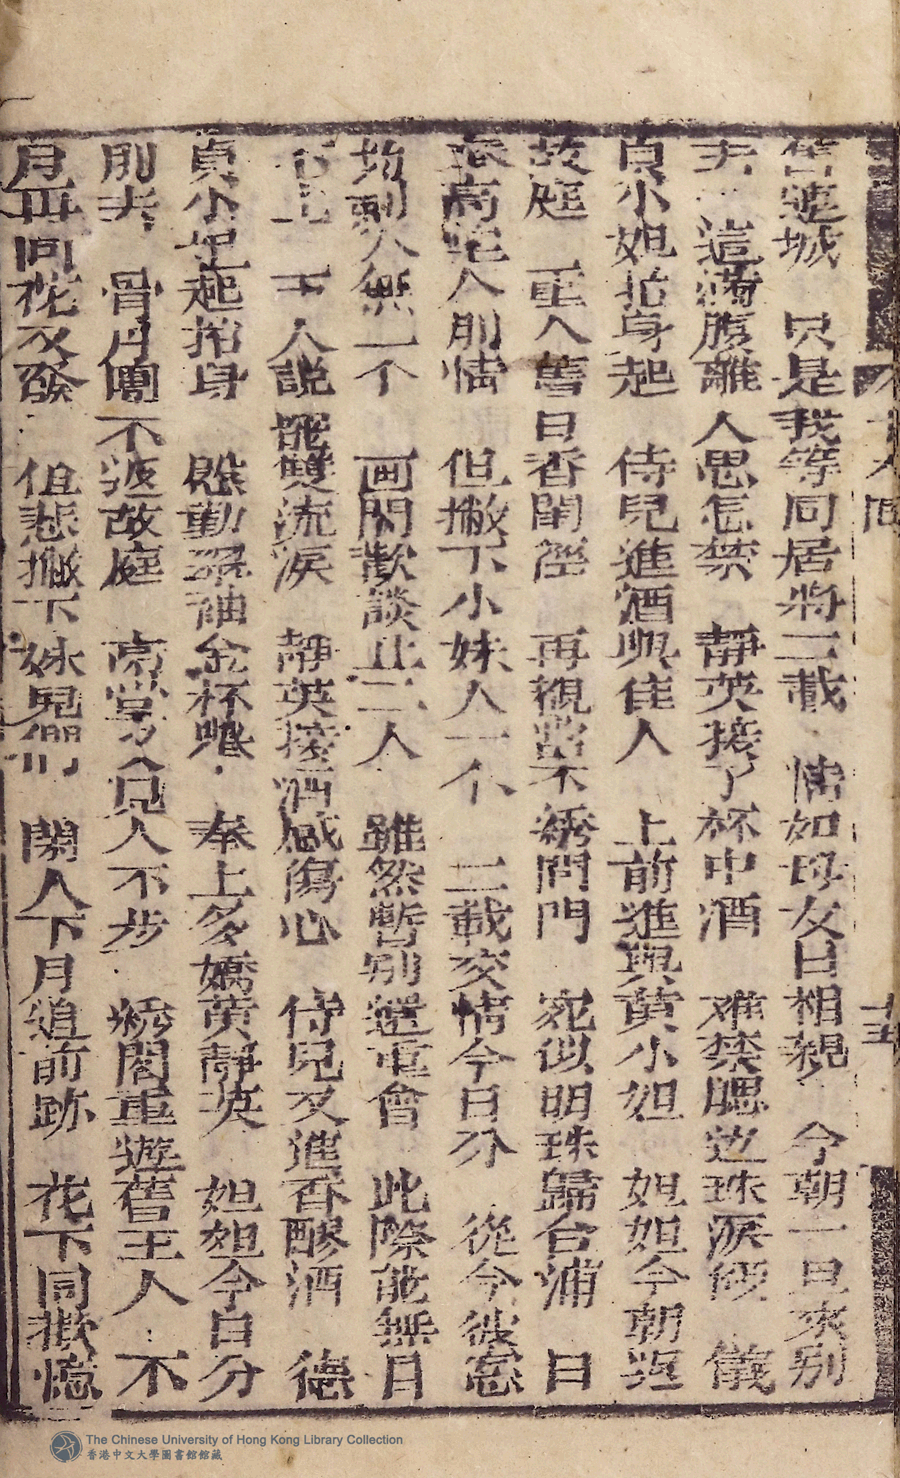 舊蓮城 只是我等同居將二載 情如母女日相親 今朝一旦來別
夫 這滿腹離人思怎禁 靜英接了杯中酒 难禁腮边珠淚 儀
貞小姐抬身起 侍兒進酒與佳人 上前進與黄小姐 姐姐今朝返
故庭 重入舊日香閨徑 再觀當 不綉問門 宛似明珠歸台浦 日
高 人 情 但撇下小妹人一个 二載交情今日分 從今彼
剩人無一个 画閣歡談止二人 雖然暫别還重會 此際能無目
下人説罷雙流淚 靜英接酒感傷心 侍兒又進香醪酒 德
貞小姐起抬身 慇勤羅袖金杯 奉上多嬌黄靜英 姐姐今日分
别去 骨月團 不返故庭 高堂 人不步 綉閣重遊舊主人 不
月 花又發 但悲撇下妹兒們 閑人下月追前跡 花下同歡憶
十五
The Chinese University of Hong Kong Library Collection
香港中文大學圖書館館藏